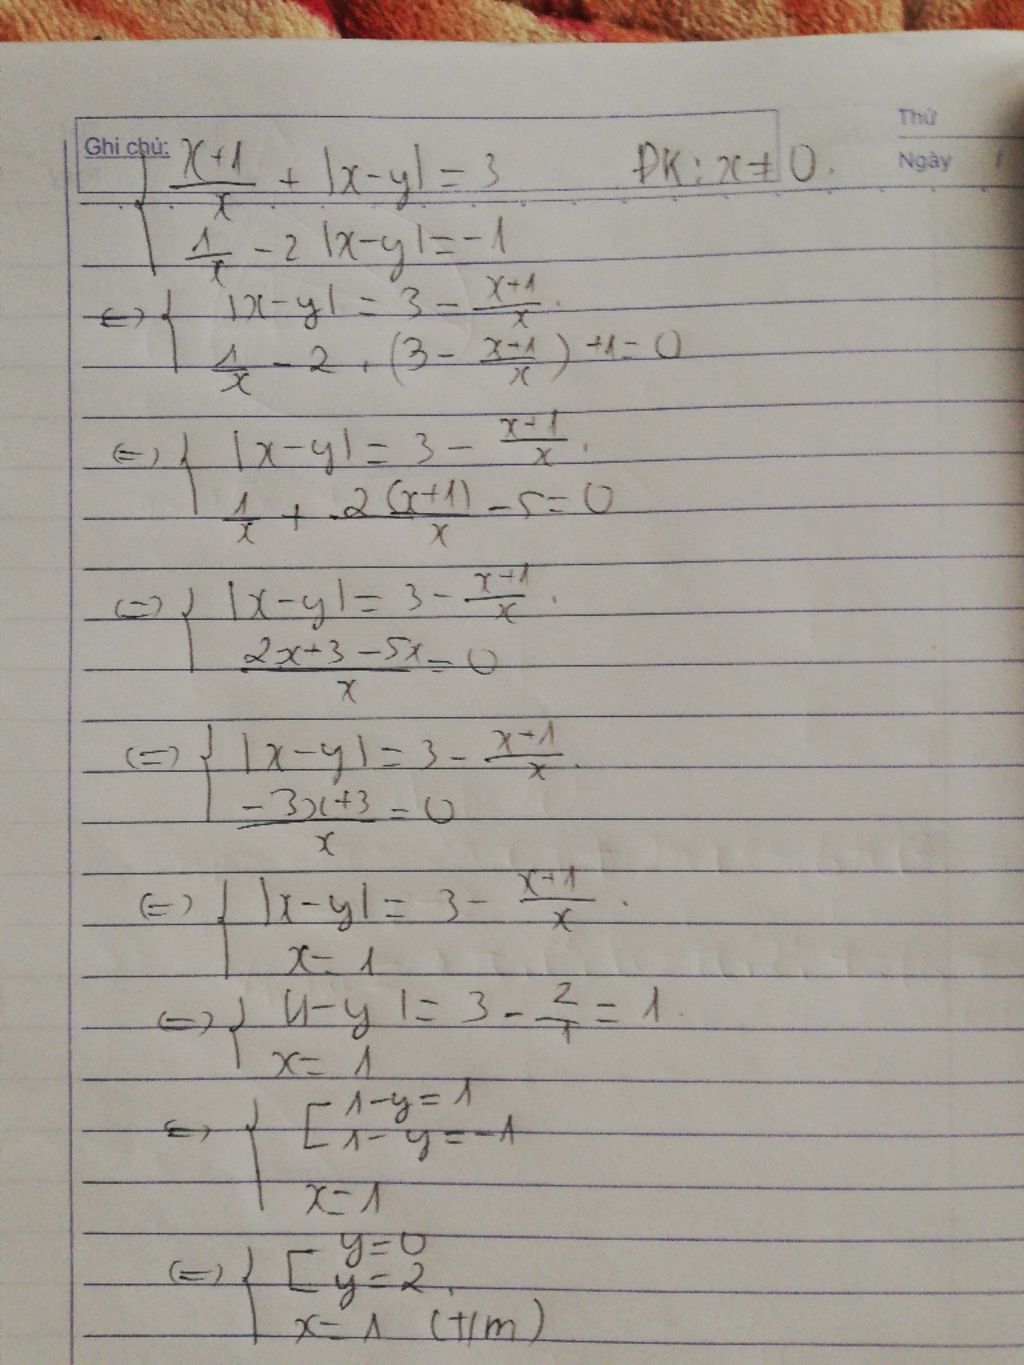 Thứ
Ghi chú: Ngày
{ (x+1)/x + |x-y| = 3 ĐK: x ≠ 0.
1/x - 2|x-y| = -1
<=> { |x-y| = 3 - (x+1)/x.
1/x - 2.(3 - (x+1)/x) + 1 = 0
<=> { |x-y| = 3 - (x+1)/x.
1/x + 2(x+1)/x - 5 = 0
<=> { |x-y| = 3 - (x+1)/x.
(2x+3-5x)/x = 0
<=> { |x-y| = 3 - (x+1)/x.
(-3x+3)/x = 0
<=> { |x-y| = 3 - (x+1)/x.
x = 1
<=> { |1-y| = 3 - 2/1 = 1.
x = 1
<=> { [ 1-y = 1
1-y = -1
x = 1
<=> { [ y = 0
y = 2.
x = 1 (t/m)